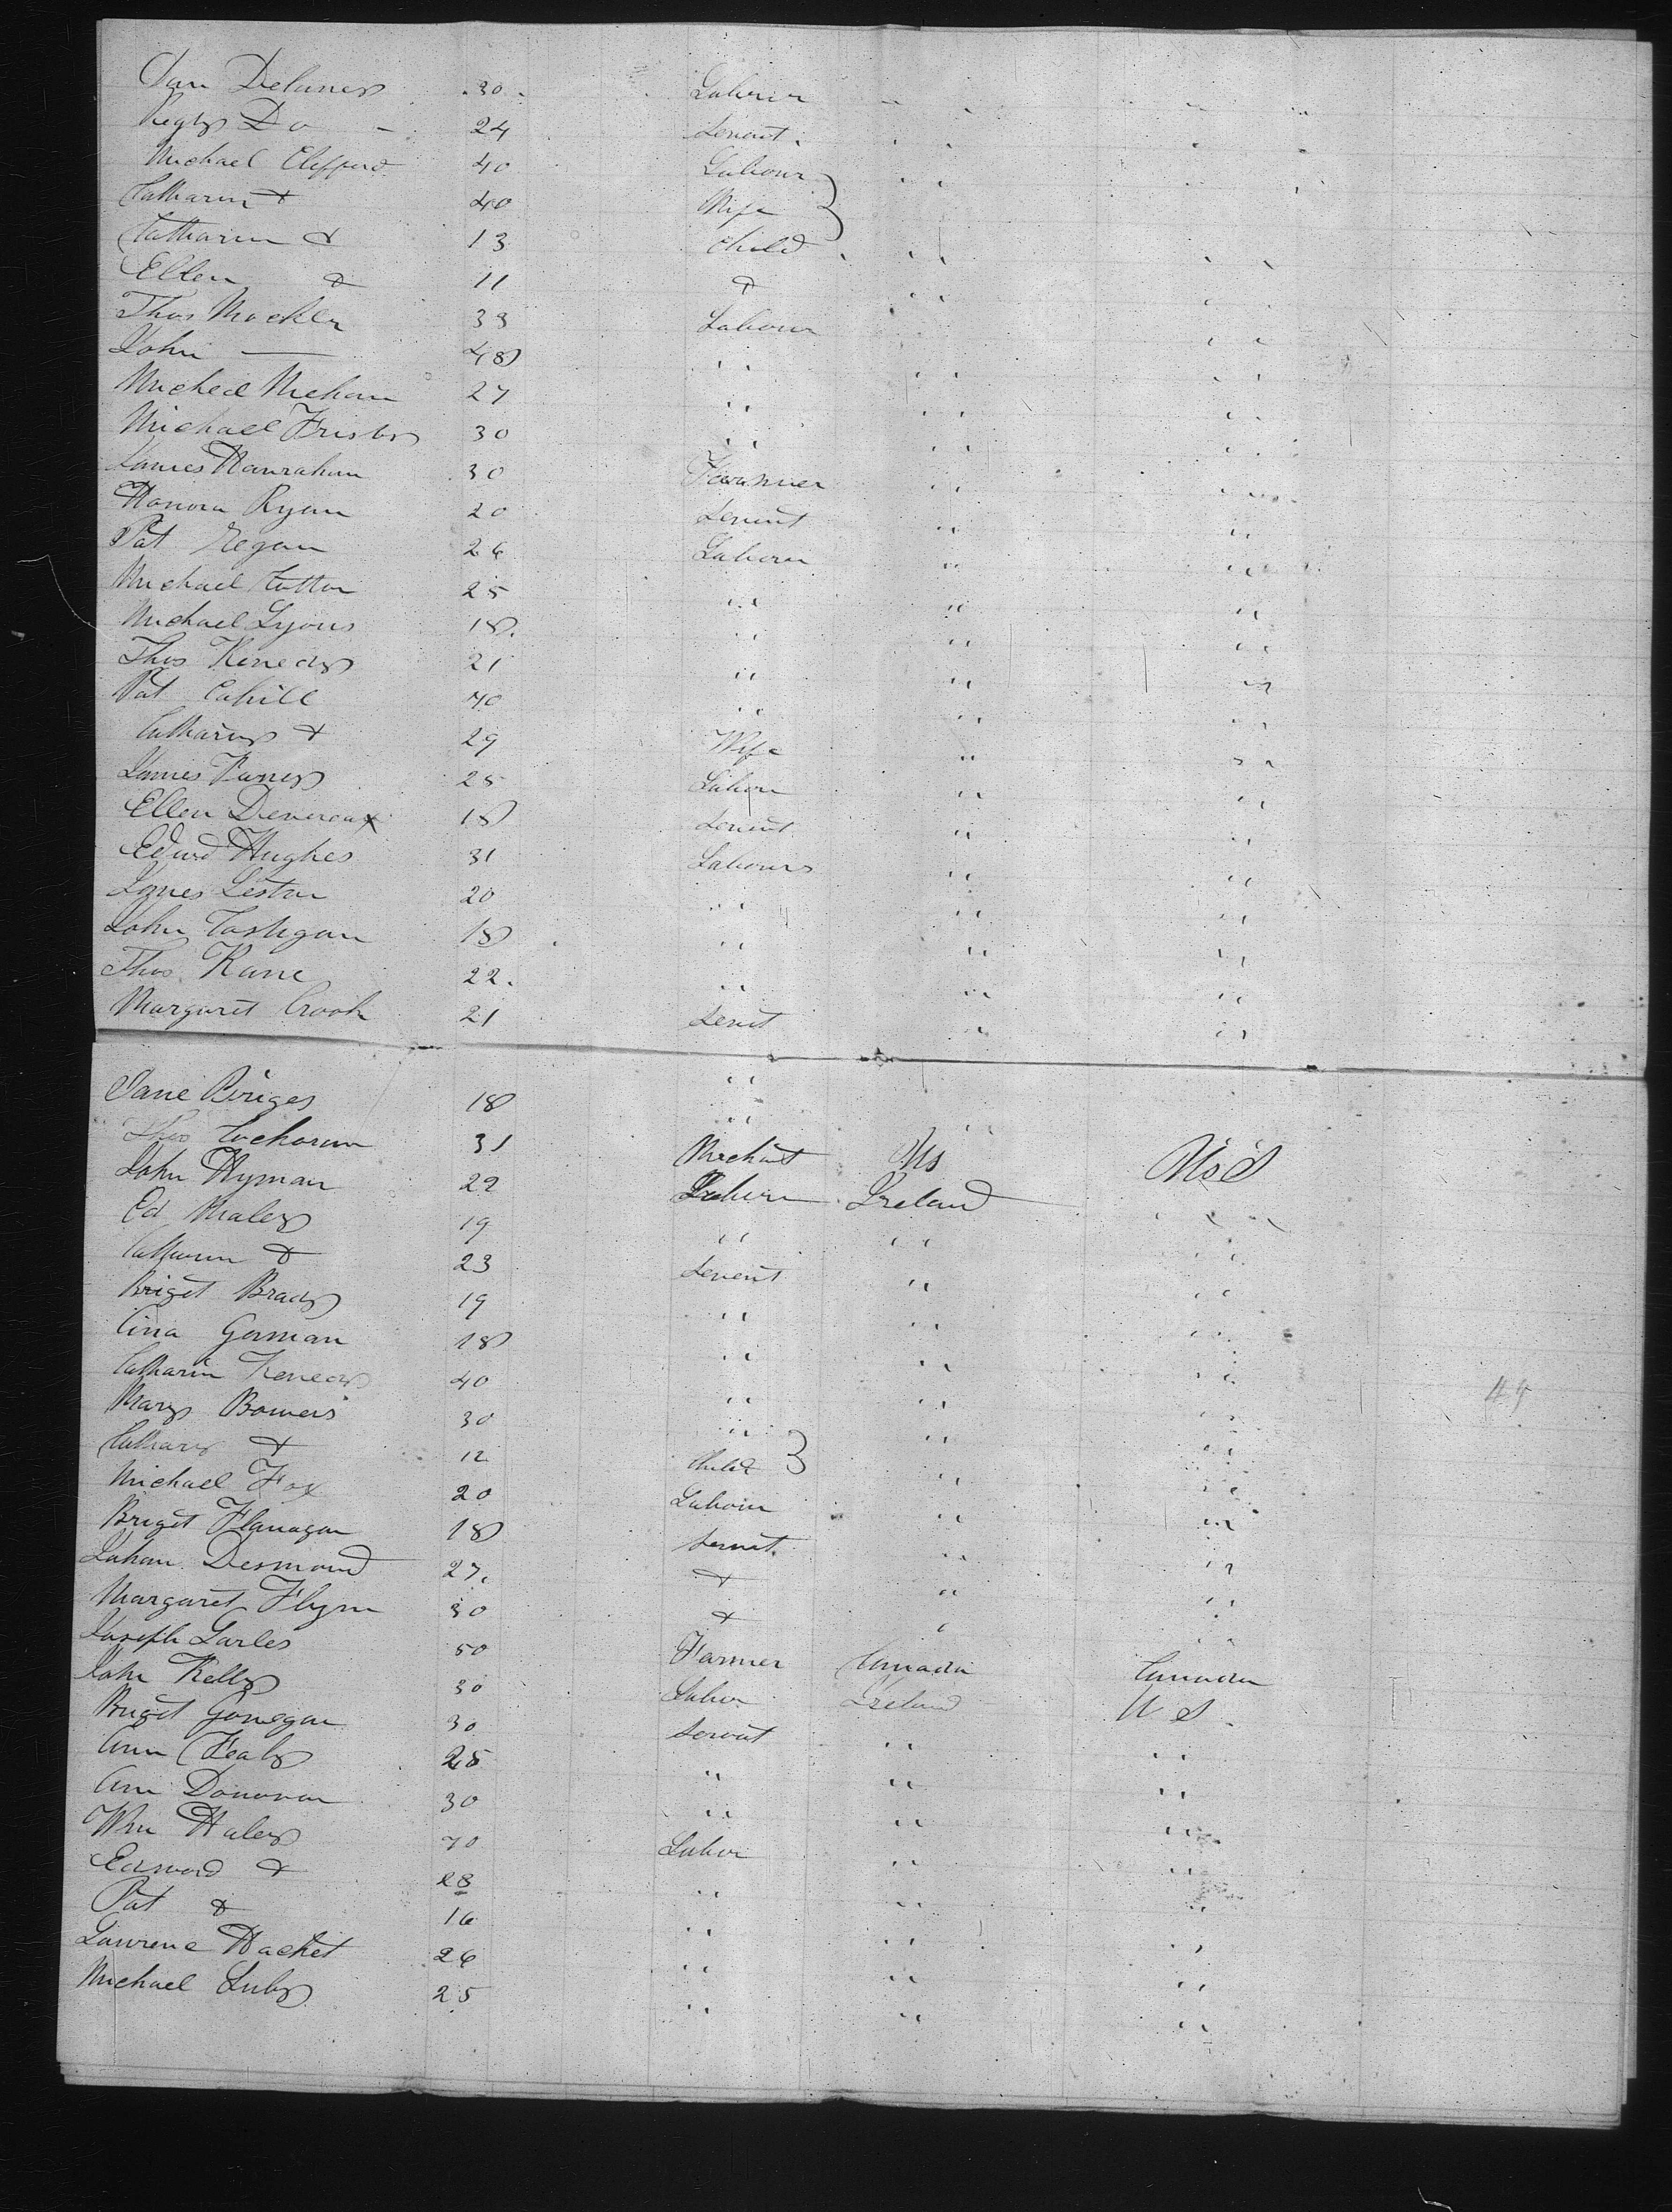 Dan Delaney 30 Labourer " "
Do 24 Servant " "
Michael Clifford 40 Labour " "
Catharin + 40 Wife
Catharin + 13 Child " "
Ellen + 11 + " "
Thos Mockler 33 Labour " "
John — 48 " " "
Micheal Mehan 27 " " "
Michael Frisby 30 " " "
James Hanrahan 30 Farmer " "
Honora Ryan 20 Servent " "
Pat Regan 26 Labour " "
Michael 25 " " "
Michael Lyons 18 " " "
Thos Kenedy 21 " " "
Pat Cahill 40 " " "
Catharin + 29 Wife " "
James 25 Labour " "
Ellen Devereaux 18 Servent " "
Edwd Hughes 31 Labourer " "
James 20 " " "
John 18 " " "
Thos Kane 22 " " "
Margaret Crook 21 Servt " "
Jane 18 "
Thos 31 Merchant Us U S
John Hyman 22 Labour Ireland "
Ed Maley 19 " " "
Catharin + 23 Servent " "
Briget Brady 19 " " "
Ann Gorman 18 " " "
Catharin Kenedy 40 " " "
Mary Bowers 30 " " "
Cathary + 12 Child " "
Michael Fox 20 Labour " "
Briget Flanagan 18 Servnt " "
Desmond 27 + " "
Margaret Flynn 30 + " "
Joseph Garles 50 Farmer Canada Canada
John Kelly 30 Labor Ireland U S
Briget Gonegan 30 Servent " "
Ann Healy 25 " " "
Ann Donovan 30 " " "
Wm Haley 70 Labor " "
Edward + 28 " " "
Pat + 16 " " "
Lawrence Hachet 26 " " "
Michael Luby 25 " " "